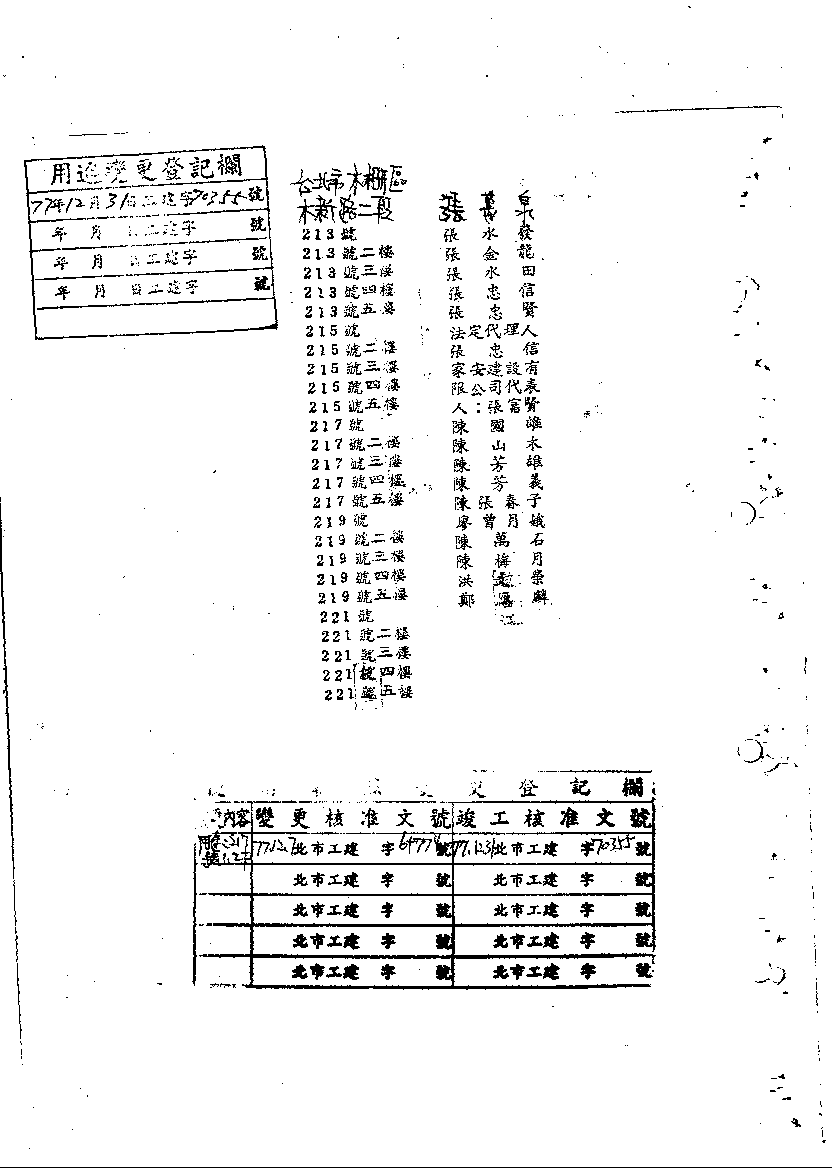 用途變更登記欄
77年12月31日工建字70355號
年 月 日工建字 號
年 月 日工建字 號
年 月 日工建字 號
台北市木柵區
木新路二段
213號
213號二樓
213號三樓
213號四樓
213號五樓
215號
215號二樓
215號三樓
215號四樓
215號五樓
217號
217號二樓
217號三樓
217號四樓
217號五樓
219號
219號二樓
219號三樓
219號四樓
219號五樓
221號
221號二樓
221號三樓
221號四樓
221號五樓
張 泉
張水發
張金龍
張水田
張忠信
張忠賢
法定代理人
張忠信
家安建設有
限公司代表
人：張富賢
陳國雄
陳山木
陳芳雄
陳芳義
陳張春子
廖曾月娥
陳萬石
陳梅月
洪 榮
鄭 麟
江
變更登記欄
內容 變更核准文號 竣工核准文號
77.12.7北市工建 字 號 77.12.31北市工建 字70355號
北市工建 字 號 北市工建 字 號
北市工建 字 號 北市工建 字 號
北市工建 字 號 北市工建 字 號
北市工建 字 號 北市工建 字 號